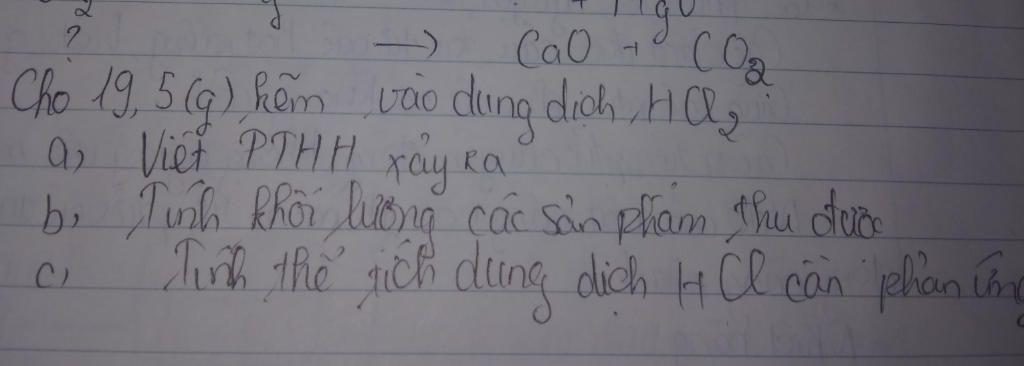 2 + MgO
? → CaO + CO2
Cho 19,5(g) kẽm vào dung dịch HCl2
a, Viết PTHH xảy ra
b, Tính khối lượng các sản phẩm thu được
c, Tính thể tích dung dịch HCl cần phản ứng